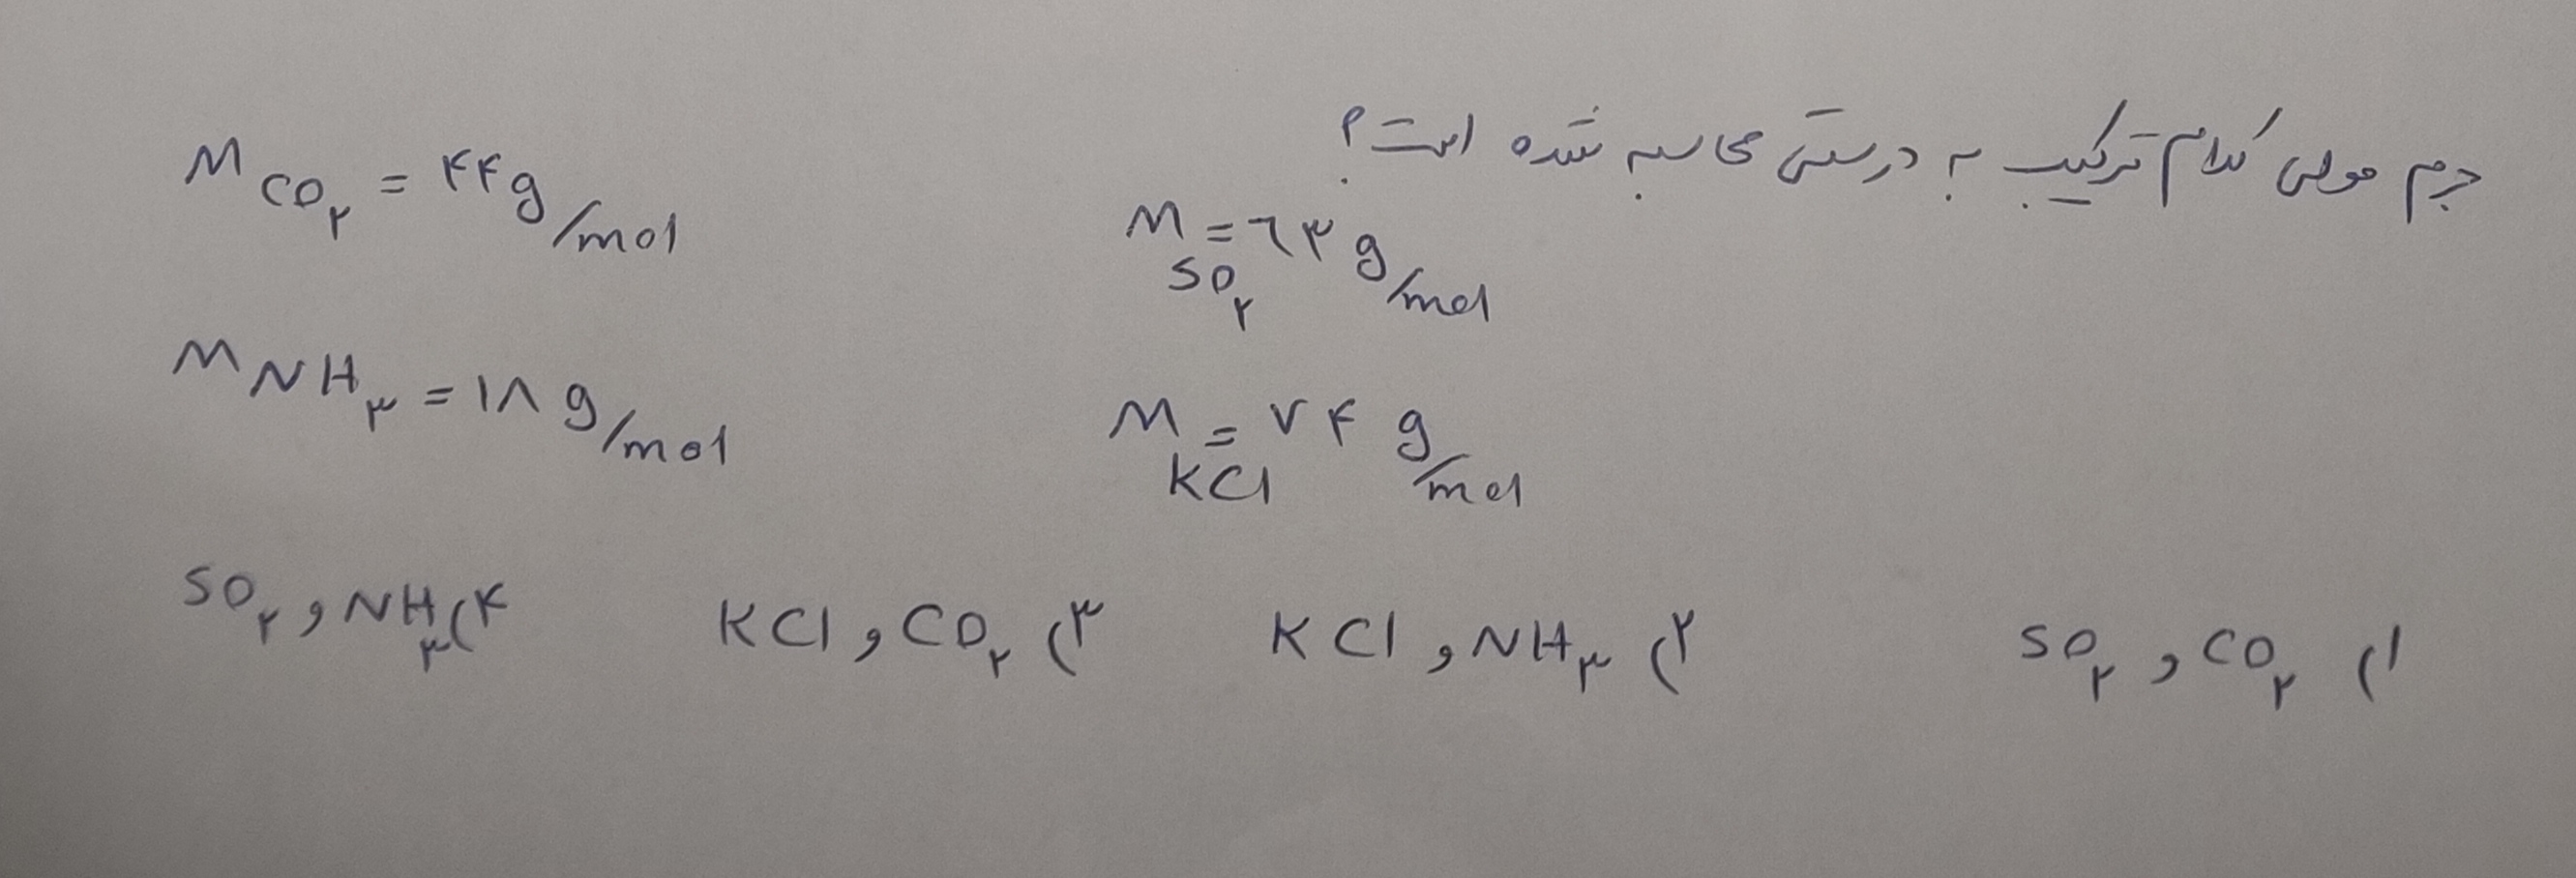 جرم مولی کدام ترکیب به درستی محاسبه شده است؟
M SO۲ = ۶۳ g/mol
M CO۲ = ۴۴ g/mol
M KCl = ۷۴ g/mol
M NH۳ = ۱۸ g/mol
۱) CO۲ و SO۲
۲) NH۳ و KCl
۳) CO۲ و KCl
۴) NH۳ و SO۲